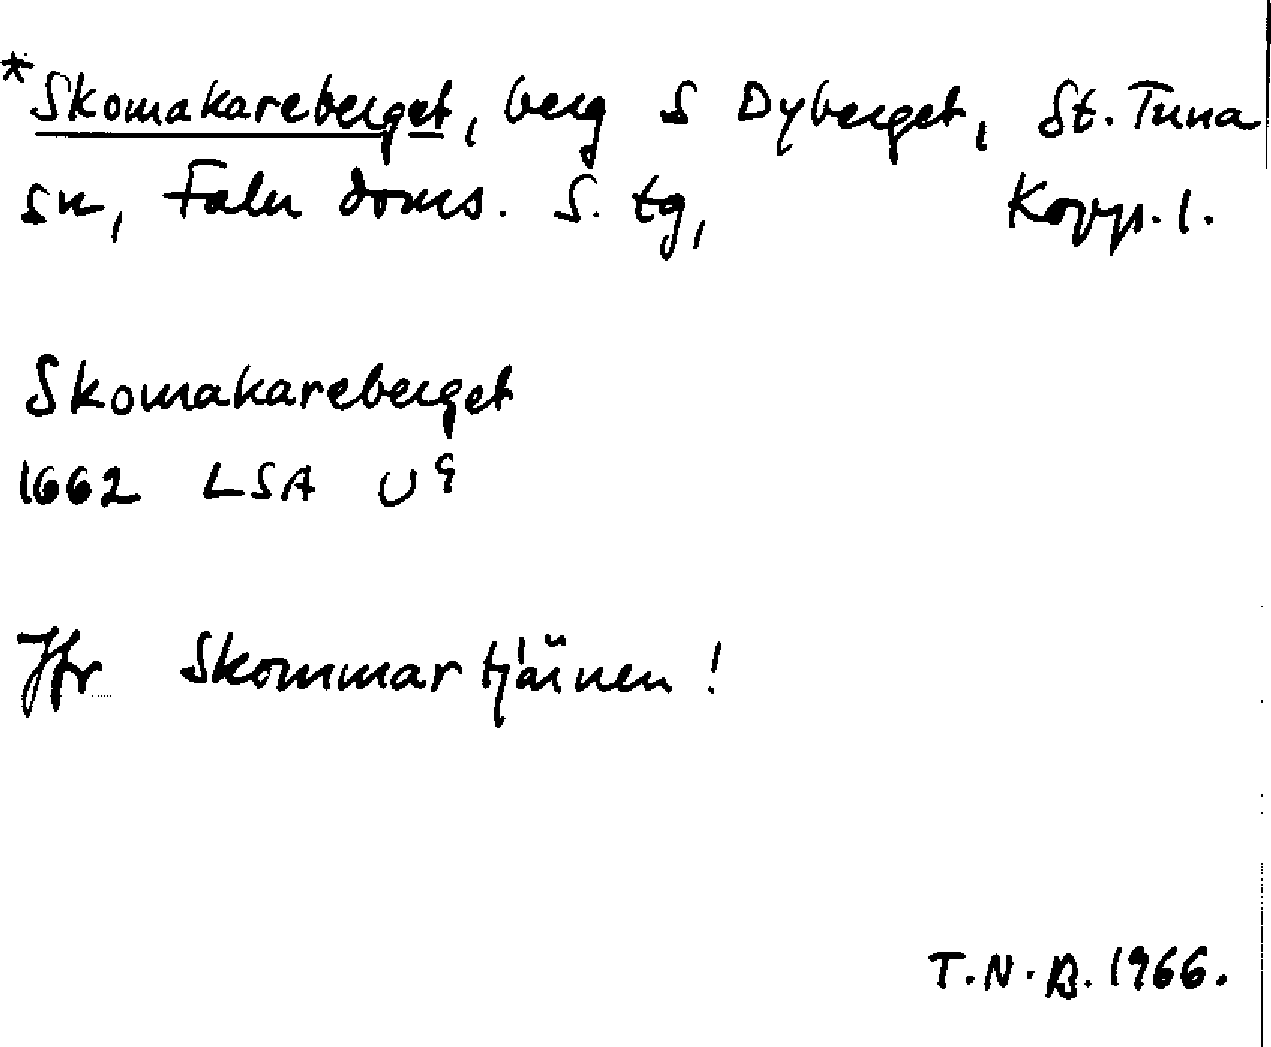 *Skomakareberget, berg S Dyberget, St. Tuna
sn, Falu doms. S. tg, Kopp. l.
Skomakareberget
1662 LSA U⁹
Jfr Skommartjärnen!
T.N.B. 1966.